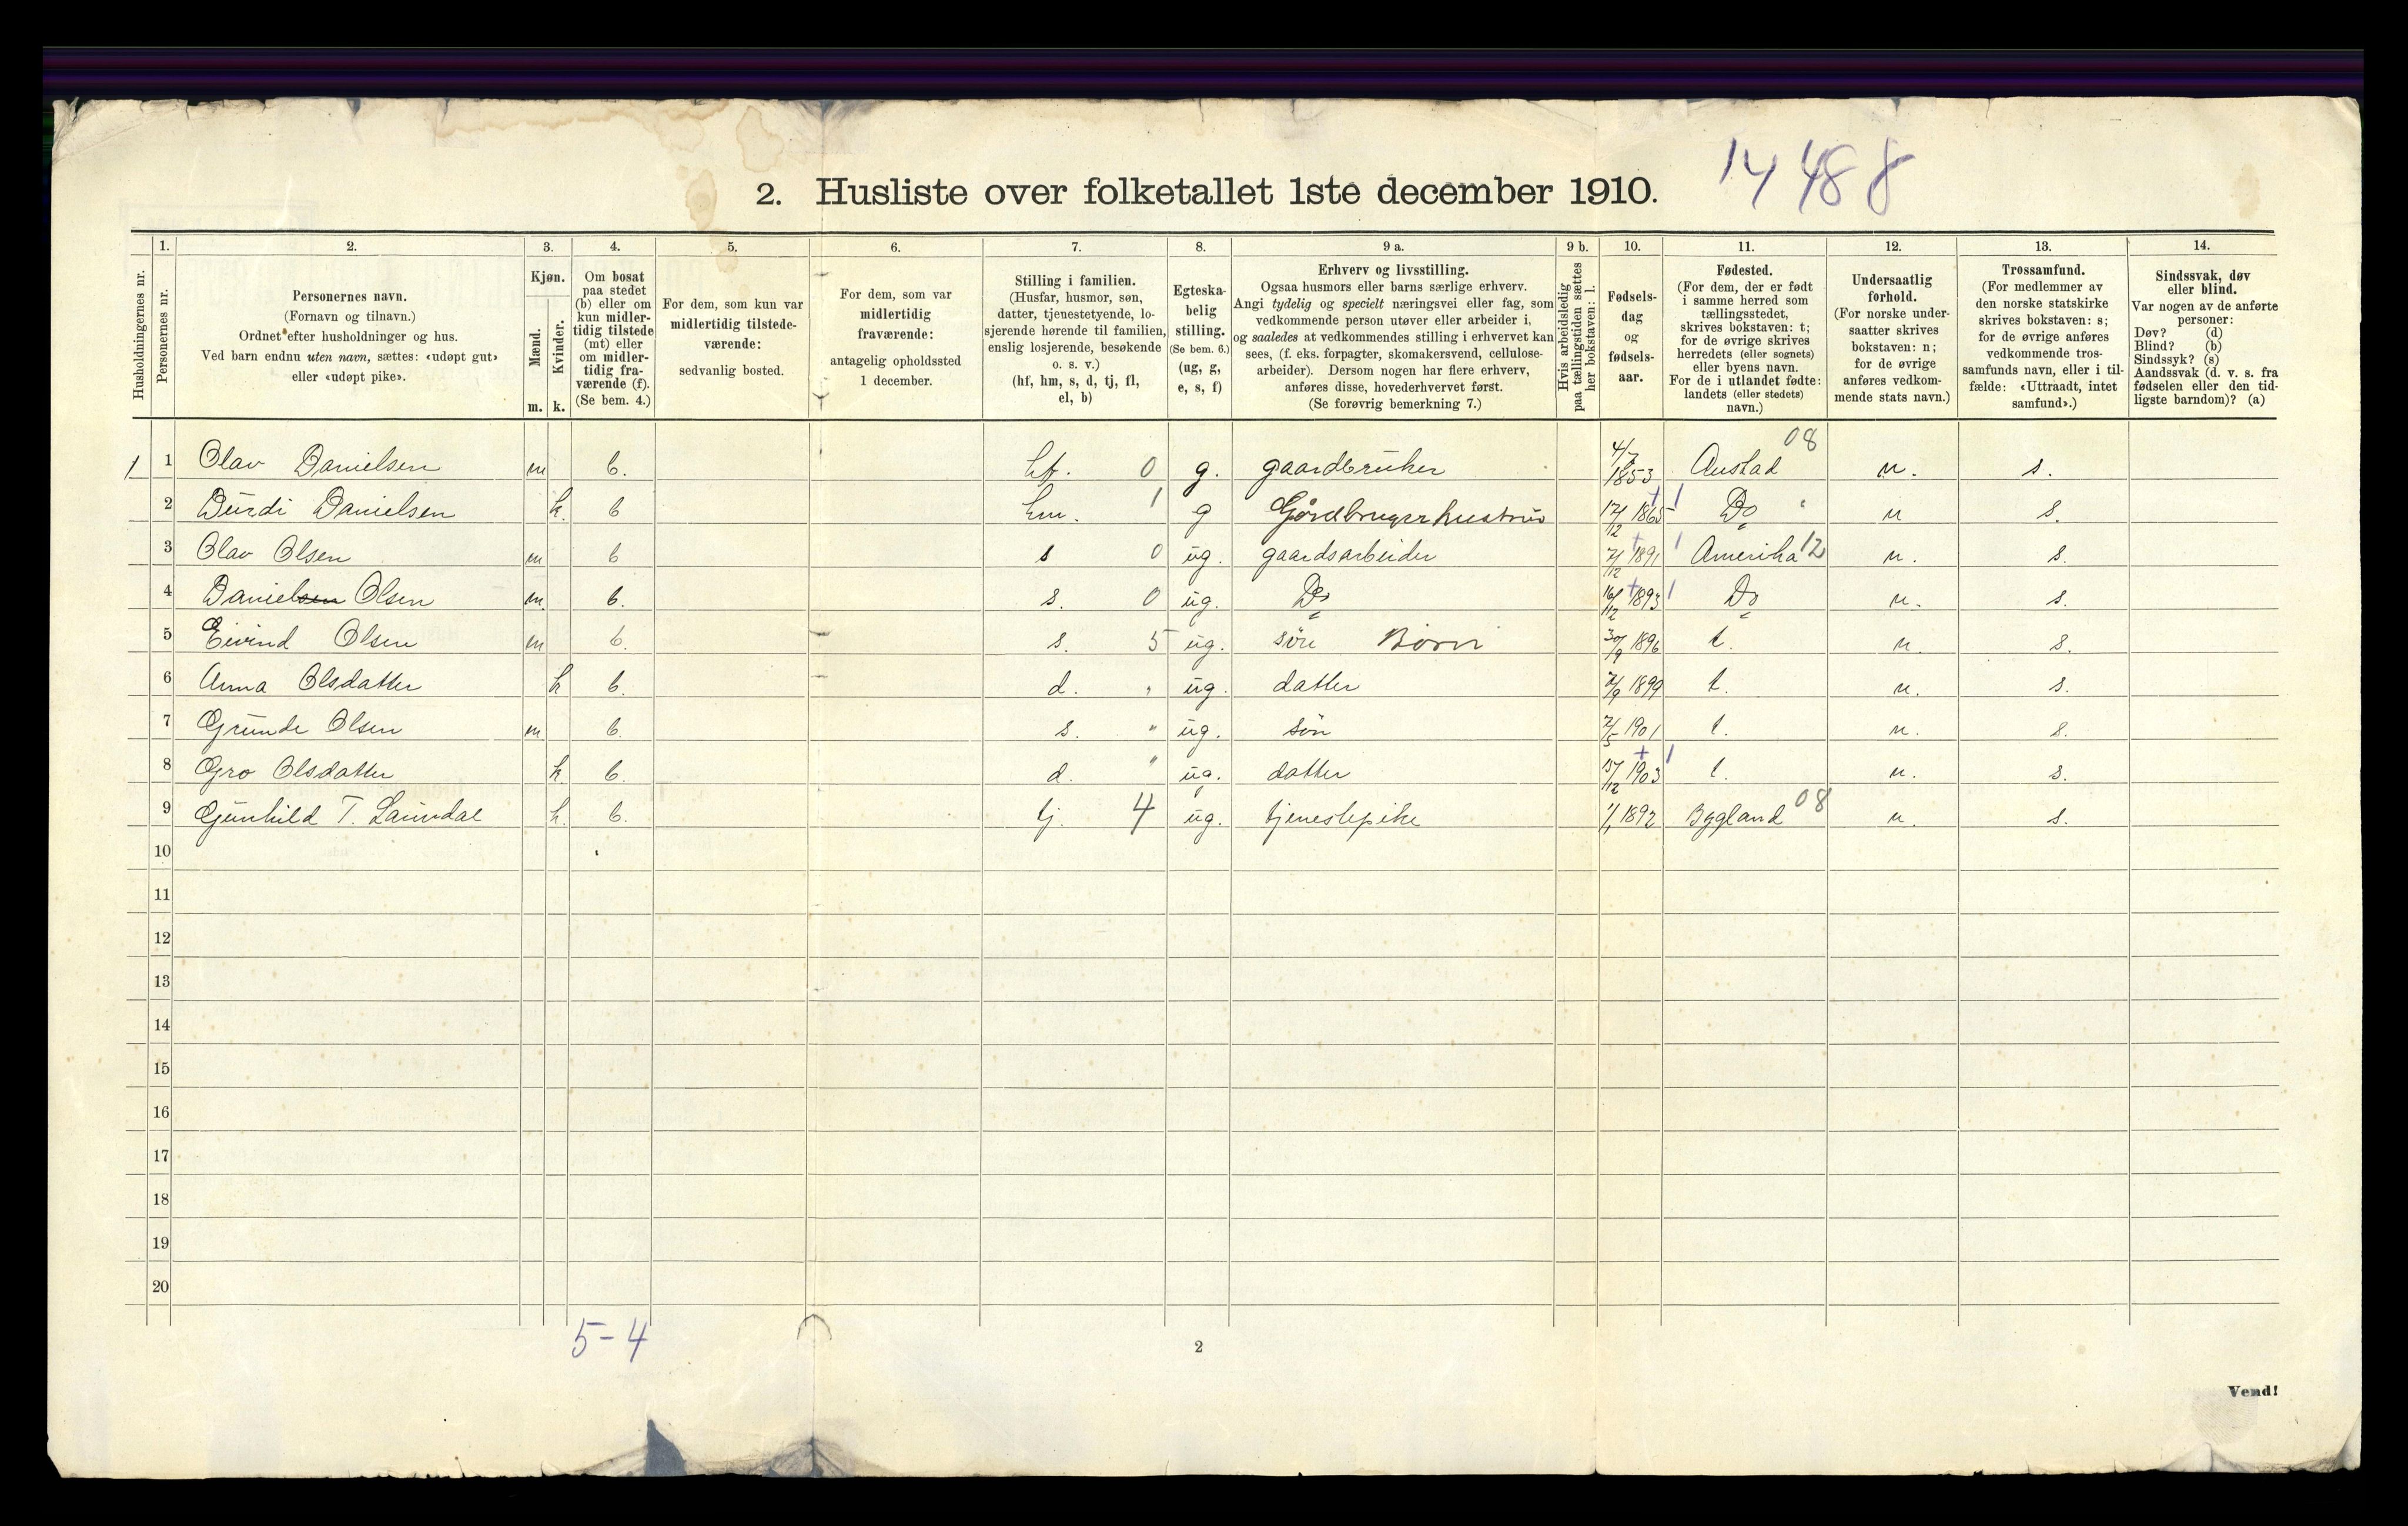 2. Husliste over folketallet 1ste december 1910. 14 488
1. 2. 3. 4. 5. 6. 7. 8. 9 a. 9 b. 10. 11. 12. 13. 14.
Husholdningernes nr.
Personernes nr.
Personernes navn.
(Fornavn og tilnavn.)
Ordnet efter husholdninger og hus.
Ved barn endnu uten navn, sættes: «udøpt gut»
eller «udøpt pike».
Kjøn.
Mænd.
Kvinder.
m. k.
Om bosat
paa stedet
(b) eller om
kun midler-
tidig tilstede
(mt) eller
om midler-
tidig fra-
værende (f).
(Se bem. 4.)
For dem, som kun var
midlertidig tilstede-
værende:
sedvanlig bosted.
For dem, som var
midlertidig
fraværende:
antagelig opholdssted
1 december.
Stilling i familien.
(Husfar, husmor, søn,
datter, tjenestetyende, lo-
sjerende hørende til familien,
enslig losjerende, besøkende
o. s. v.)
(hf, hm, s, d, tj, fl,
el, b)
Egteska-
belig
stilling.
(Se bem. 6.)
(ug, g,
e, s, f)
Erhverv og livsstilling.
Ogsaa husmors eller barns særlige erhverv.
Angi tydelig og specielt næringsvei eller fag, som
vedkommende person utøver eller arbeider i,
og saaledes at vedkommendes stilling i erhvervet kan
sees, (f. eks. forpagter, skomakersvend, cellulose-
arbeider). Dersom nogen har flere erhverv,
anføres disse, hovederhvervet først.
(Se forøvrig bemerkning 7.)
Hvis arbeidsledig
paa tællingstiden sættes
her bokstaven: l.
Fødsels-
dag
og
fødsels-
aar.
Fødested.
(For dem, der er født
i samme herred som
tællingsstedet,
skrives bokstaven: t;
for de øvrige skrives
herredets (eller sognets)
eller byens navn.
For de i utlandet fødte:
landets (eller stedets)
navn.)
Undersaatlig
forhold.
(For norske under-
saatter skrives
bokstaven: n;
for de øvrige
anføres vedkom-
mende stats navn.)
Trossamfund.
(For medlemmer av
den norske statskirke
skrives bokstaven: s;
for de øvrige anføres
vedkommende tros-
samfunds navn, eller i til-
fælde: «Uttraadt, intet
samfund».)
Sindssvak, døv
eller blind.
Var nogen av de anførte
personer:
Døv? (d)
Blind? (b)
Sindssyk? (s)
Aandssvak (d. v. s. fra
fødselen eller den tid-
ligste barndom)? (a)
1 1 Olav Danielsen m b. hf. 0 g. gaardbruker 4/7 1853 Austad 08 n. s.
2 Durdi Danielsen k. b hm. 1 g Gårdbrugerhustru 17/12 1865 + 1 Do n s.
3 Olav Olsen m b s 0 ug. gaardsarbeider 1891 + 1 Amerika 12 n. s.
4 Danielsen Olsen m. b. s. 0 ug. Do 16/12 1893 + 1 Do n. s.
5 Eivind Olsen m b. s. 5 ug. søn Børn 30/9 1896 t. n. s.
6 Anna Olsdatter k b. d. " ug. datter 1899 t. n. s.
7 Grunde Olsen m. b. s. " ug. søn 2/5 1901 t. n. s.
8 Gro Olsdatter k. b. d. " ug. datter 15/12 1903 + 1 t. n. s.
9 Gunhild T. Lauvdal k. b. tj. 4 ug. tjenestepike 1/1 1892 Bygland 08 n. s.
10
11
12
13
14
15
16
17
18
19
20
5 - 4
2
Vend!